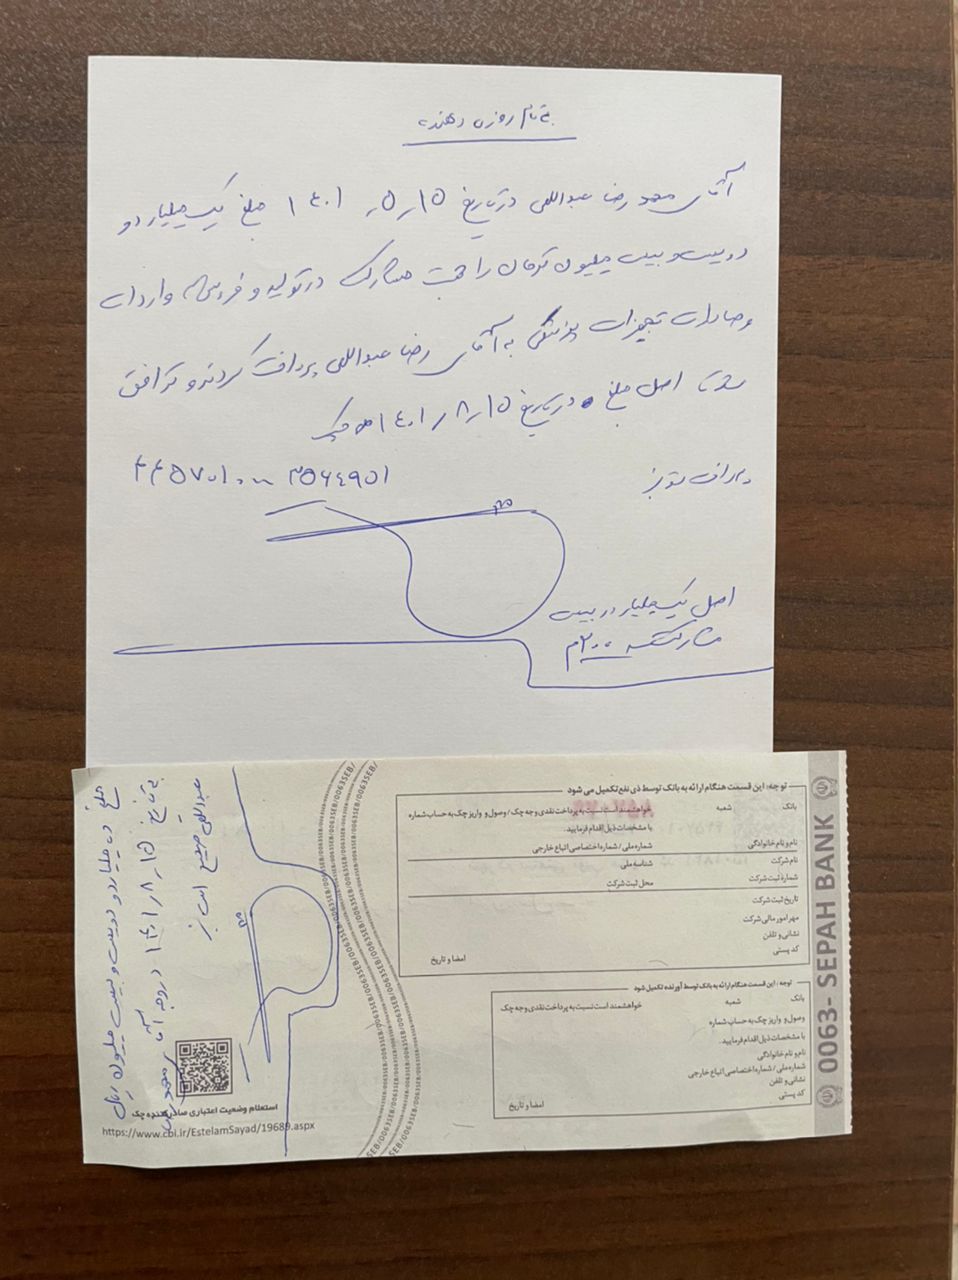 به نام روزی دهنده
آقای محمد رضا عبداللهی در تاریخ ۱۵ر۵ر۱۴۰۱ مبلغ یک میلیارد و
دویست و بیست میلیون تومان را جهت مشارکت در تولید و فروش و واردات
و صادرات تجهیزات پزشکی به آقای رضا عبداللهی پرداخت کردند و توافق
شد تا اصل مبلغ در تاریخ ۱۵ر۸ر۱۴۰۱ چک
اصل یک میلیارد دویست
مشارکت ۲۰۰م
مبلغ ده میلیارد و دویست و بیست میلیون ریال
به تاریخ ۱۵ر۸ر۱۴۰۱ در وجه آقا محمدرضا
عبداللهی صحیح است
استعلام وضعیت اعتباری صادرکننده چک
https://www.cbi.ir/EstelamSayad/19689.aspx
توجه: این قسمت هنگام ارائه به بانک توسط ذی نفع تکمیل می شود
بانک شعبه خواهشمند است نسبت به پرداخت نقدی وجه چک / وصول و واریز چک به حساب شماره
با مشخصات ذیل اقدام فرمایید.
نام و نام خانوادگی شماره ملی / شماره اختصاصی اتباع خارجی
نام شرکت شناسه ملی
شماره ثبت شرکت محل ثبت شرکت
تاریخ ثبت شرکت
مهر امور مالی شرکت
نشانی و تلفن
کد پستی امضا و تاریخ
توجه: این قسمت هنگام ارائه به بانک توسط آورنده تکمیل شود
بانک شعبه خواهشمند است نسبت به پرداخت نقدی وجه چک
وصول و واریز چک به حساب شماره
با مشخصات ذیل اقدام فرمایید.
نام و نام خانوادگی
شماره ملی / شماره اختصاصی اتباع خارجی
نشانی و تلفن
کد پستی امضا و تاریخ
0063- SEPAH BANK